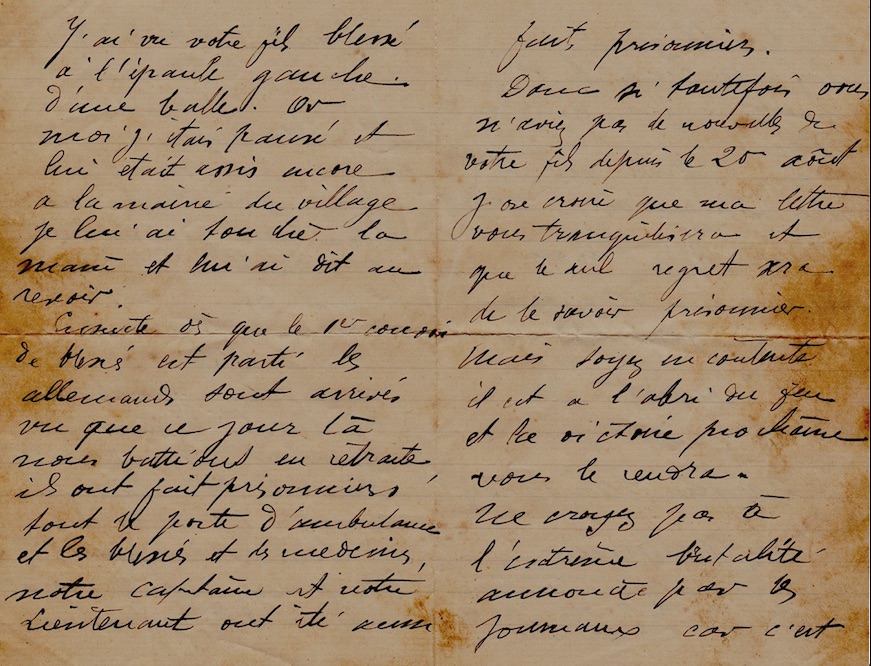 J'ai vu votre fils blessé
à l'épaule gauche
d'une balle. Or
moi j'étais pansé et
lui etait assis encore
a la mairie du village
je lui ai touché la
main et lui ai dit au
revoir.
Ensuite dès que le 1er convoi
de blessés est parti les
allemands sont arrivés
vu que ce jour là
nous battions en retraite
ils ont fait prisonniers
tout le poste d'ambulance
et les blessés et les medecins,
notre capitaine et notre
Lieutenant ont été aussi
faits prisonniers.
Donc si toutefois vous
n'aviez pas de nouvelles de
votre fils depuis le 20 août
j'ose croire que ma lettre
vous tranquilisera et
que le seul regret sera
de le savoir prisonnier.
Mais soyez en contents
il est a l'abri du feu
et la victoire prochaine
vous le rendra.
Ne croyez pas à
l'extrême brutalité
annoncée par les
Journaux car c'est